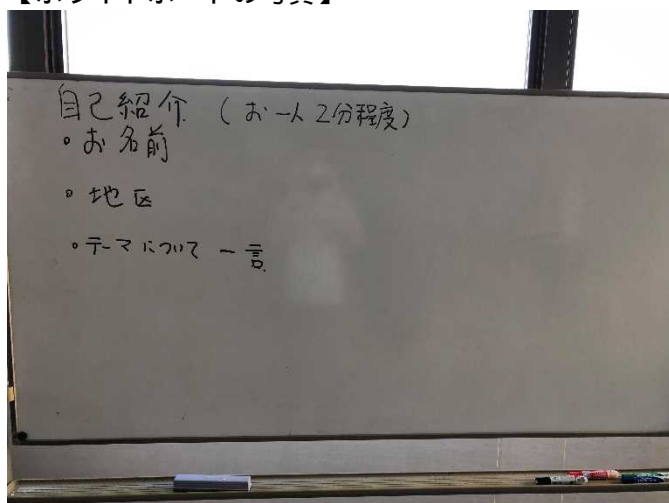 自己紹介（お一人2分程度）
・お名前
・地区
・テーマについて一言